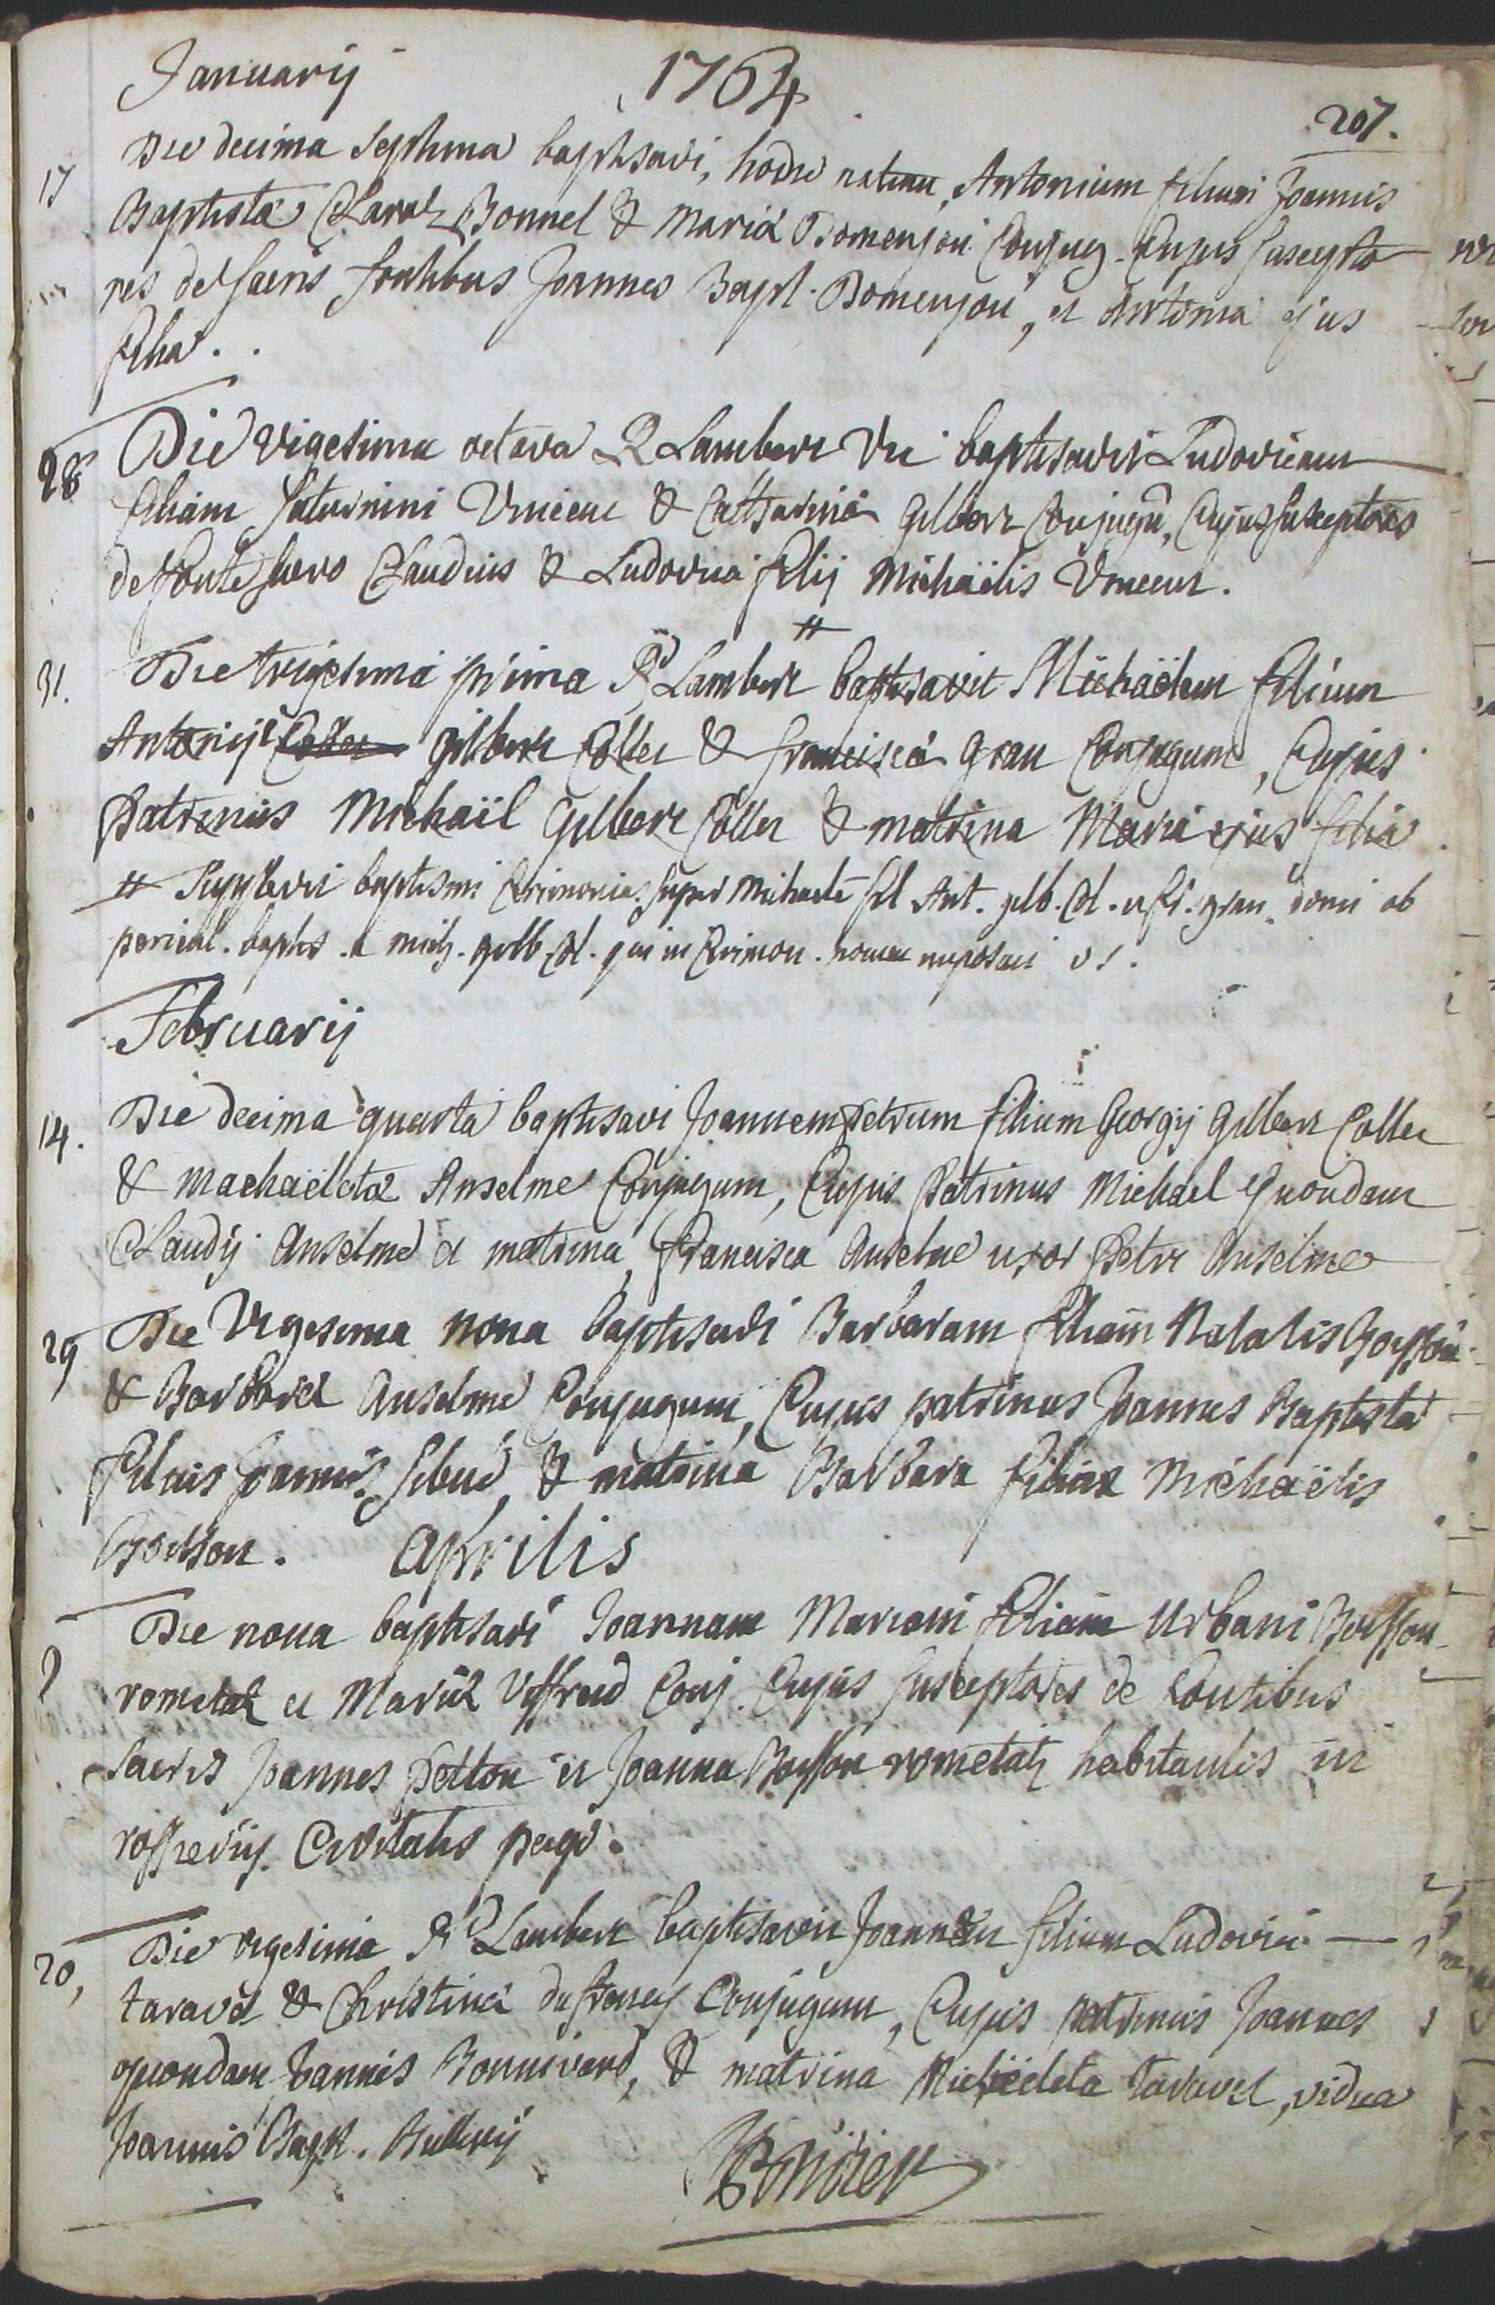 Januarij 1764
207.
17 Die decima septima baptisavi, hodie natum, Antonium filium Joannis
Baptistæ Claraz Bonnel & Mariæ Domenjou Conjug. Cujus suscepto
res de sacris fontibus Joannes Bapt. Domenjou, et Antonia ejus
filia.
28 Die vigesima octava R Lambert Vic baptisavit Ludovicam
filiam Saturnini Vincent & Catharinæ Gilbert Conjugũ, Cujus susceptores
de fonte sacro Claudius & Ludovica filij Michaëlis Vincent.
31. Die trigesima prima Rd Lambert # baptisavit Michaëlem filium
Antonij Coller Gilbert Coller & franciscæ Grau Conjugum, Cujus
Patrinus Michaïl Gilbert Coller & matrina Maria ejus filia.
# Supplevi baptismi Cerimonias super Michaele fil Ant. gilb. Col. et fr. grau domi ob
pericul. baptis. a mich. gilb Col. qui in Cerimon. nomen imposui
Februarij
14. Die decima quarta baptisavi Joannem Petrum filium Georgij Gilbert Coller
& Machaëletæ Anselme Conjugum, Cujus Patrinus Michael quondam
Claudij Anselme et matrina, Francisca Anselme uxor Petri Anselme
29 Die Vigesima nona baptisavi Barbaram filiam Natalis Boisson
& Barbaræ Anselme Conjugum, Cujus patrinus Joannes Baptista
filius Joannis Sibué, & matrina Barbara filia Michaëlis
Boisson. Aprilis
9 Die nona baptisavi Joannam Mariam filiam Urbani Boisson
rometaz et Mariæ Viffred Conj. Cujus susceptores de fontibus
sacris Joannes Petton et Joanna Boisson rometaz habitantis in
Civitatis pago.
20, Die vigesima Rd Lambert baptisavit Joannem filium Ludovici
taravel & Christinæ dufreney Conjugum, Cujus patrinus Joannes
quondam Joannis Bonnivard, & matrina Michaëleta taravel, vidua
Joannis Bapt. Bulleij